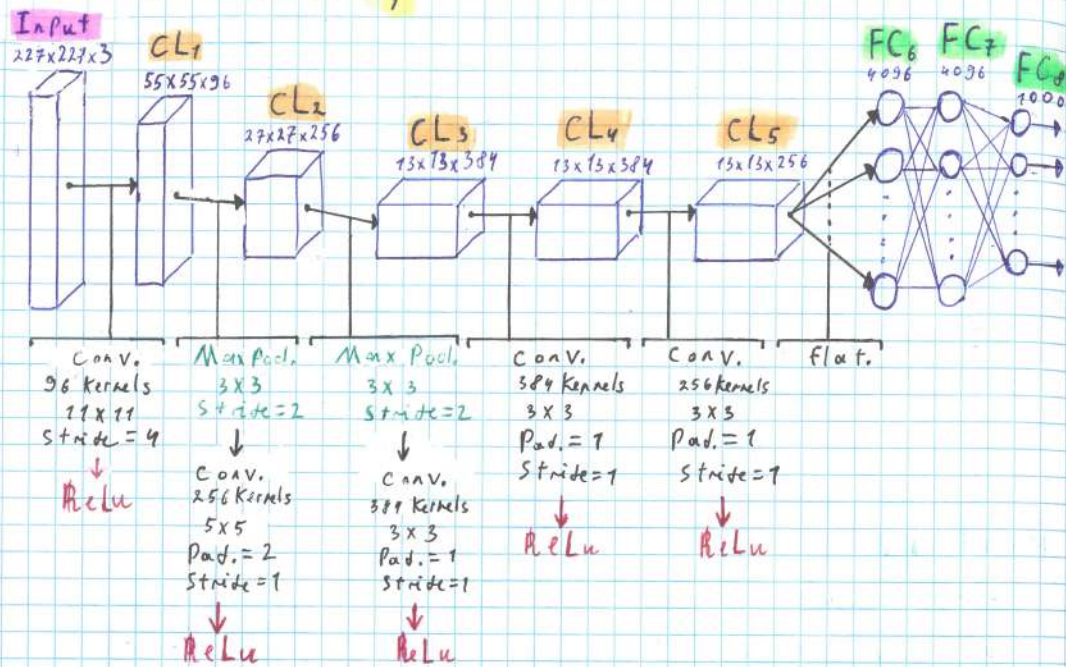 Input
227x227x3
CL1
55x55x96
CL2
27x27x256
CL3
13x13x384
CL4
13x13x384
CL5
13x13x256
FC6
4096
FC7
4096
FC8
1000
Conv.
96 Kernels
11x11
Stride=4
ReLu
Max Pool.
3x3
Stride=2
Conv.
256 Kernels
5x5
Pad.=2
Stride=1
ReLu
Max Pool.
3x3
Stride=2
Conv.
384 Kernels
3x3
Pad.=1
Stride=1
ReLu
Conv.
384 Kernels
3x3
Pad.=1
Stride=1
ReLu
Conv.
256 Kernels
3x3
Pad.=1
Stride=1
ReLu
Flat.